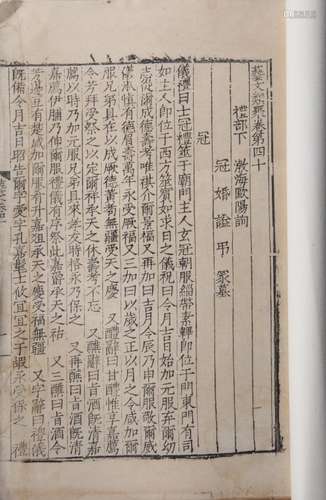 藝文類聚卷第四十
禮部下 渤海歐陽詢
冠 婚 諡 弔 冢墓
冠
儀禮曰士冠禮筮于廟門主人玄冠朝服緇帶素韠即位于門東門有司
如主人即位于西方筮賓如求日之儀祝曰令月吉日始加元服弃爾幼
志從爾成德壽考唯祺介爾景福又再加曰吉月令辰乃申爾服敬爾威
儀永慎爾德眉壽萬年永受胡福又三加曰以歲之正以月之令咸加爾
服兄弟具在以成厥德黃耇無疆受天之慶 又醴辭曰甘醴惟享嘉薦
令芳拜受祭之以定爾祥承天之休壽考不忘 又醮辭曰旨酒旣清嘉
薦亶時始加元服兄弟具來孝友時格永乃保之 又再醮曰旨酒旣湑
嘉薦伊脯乃申爾服禮儀有序祭此嘉爵承天之祜 又三醮曰旨酒令
芳籩豆有楚咸加爾服肴升折俎承天之慶受福無疆 又字辭曰禮儀
旣備令月吉日昭告爾字爰字孔嘉髦士攸宜宜之于嘏永受保之 禮